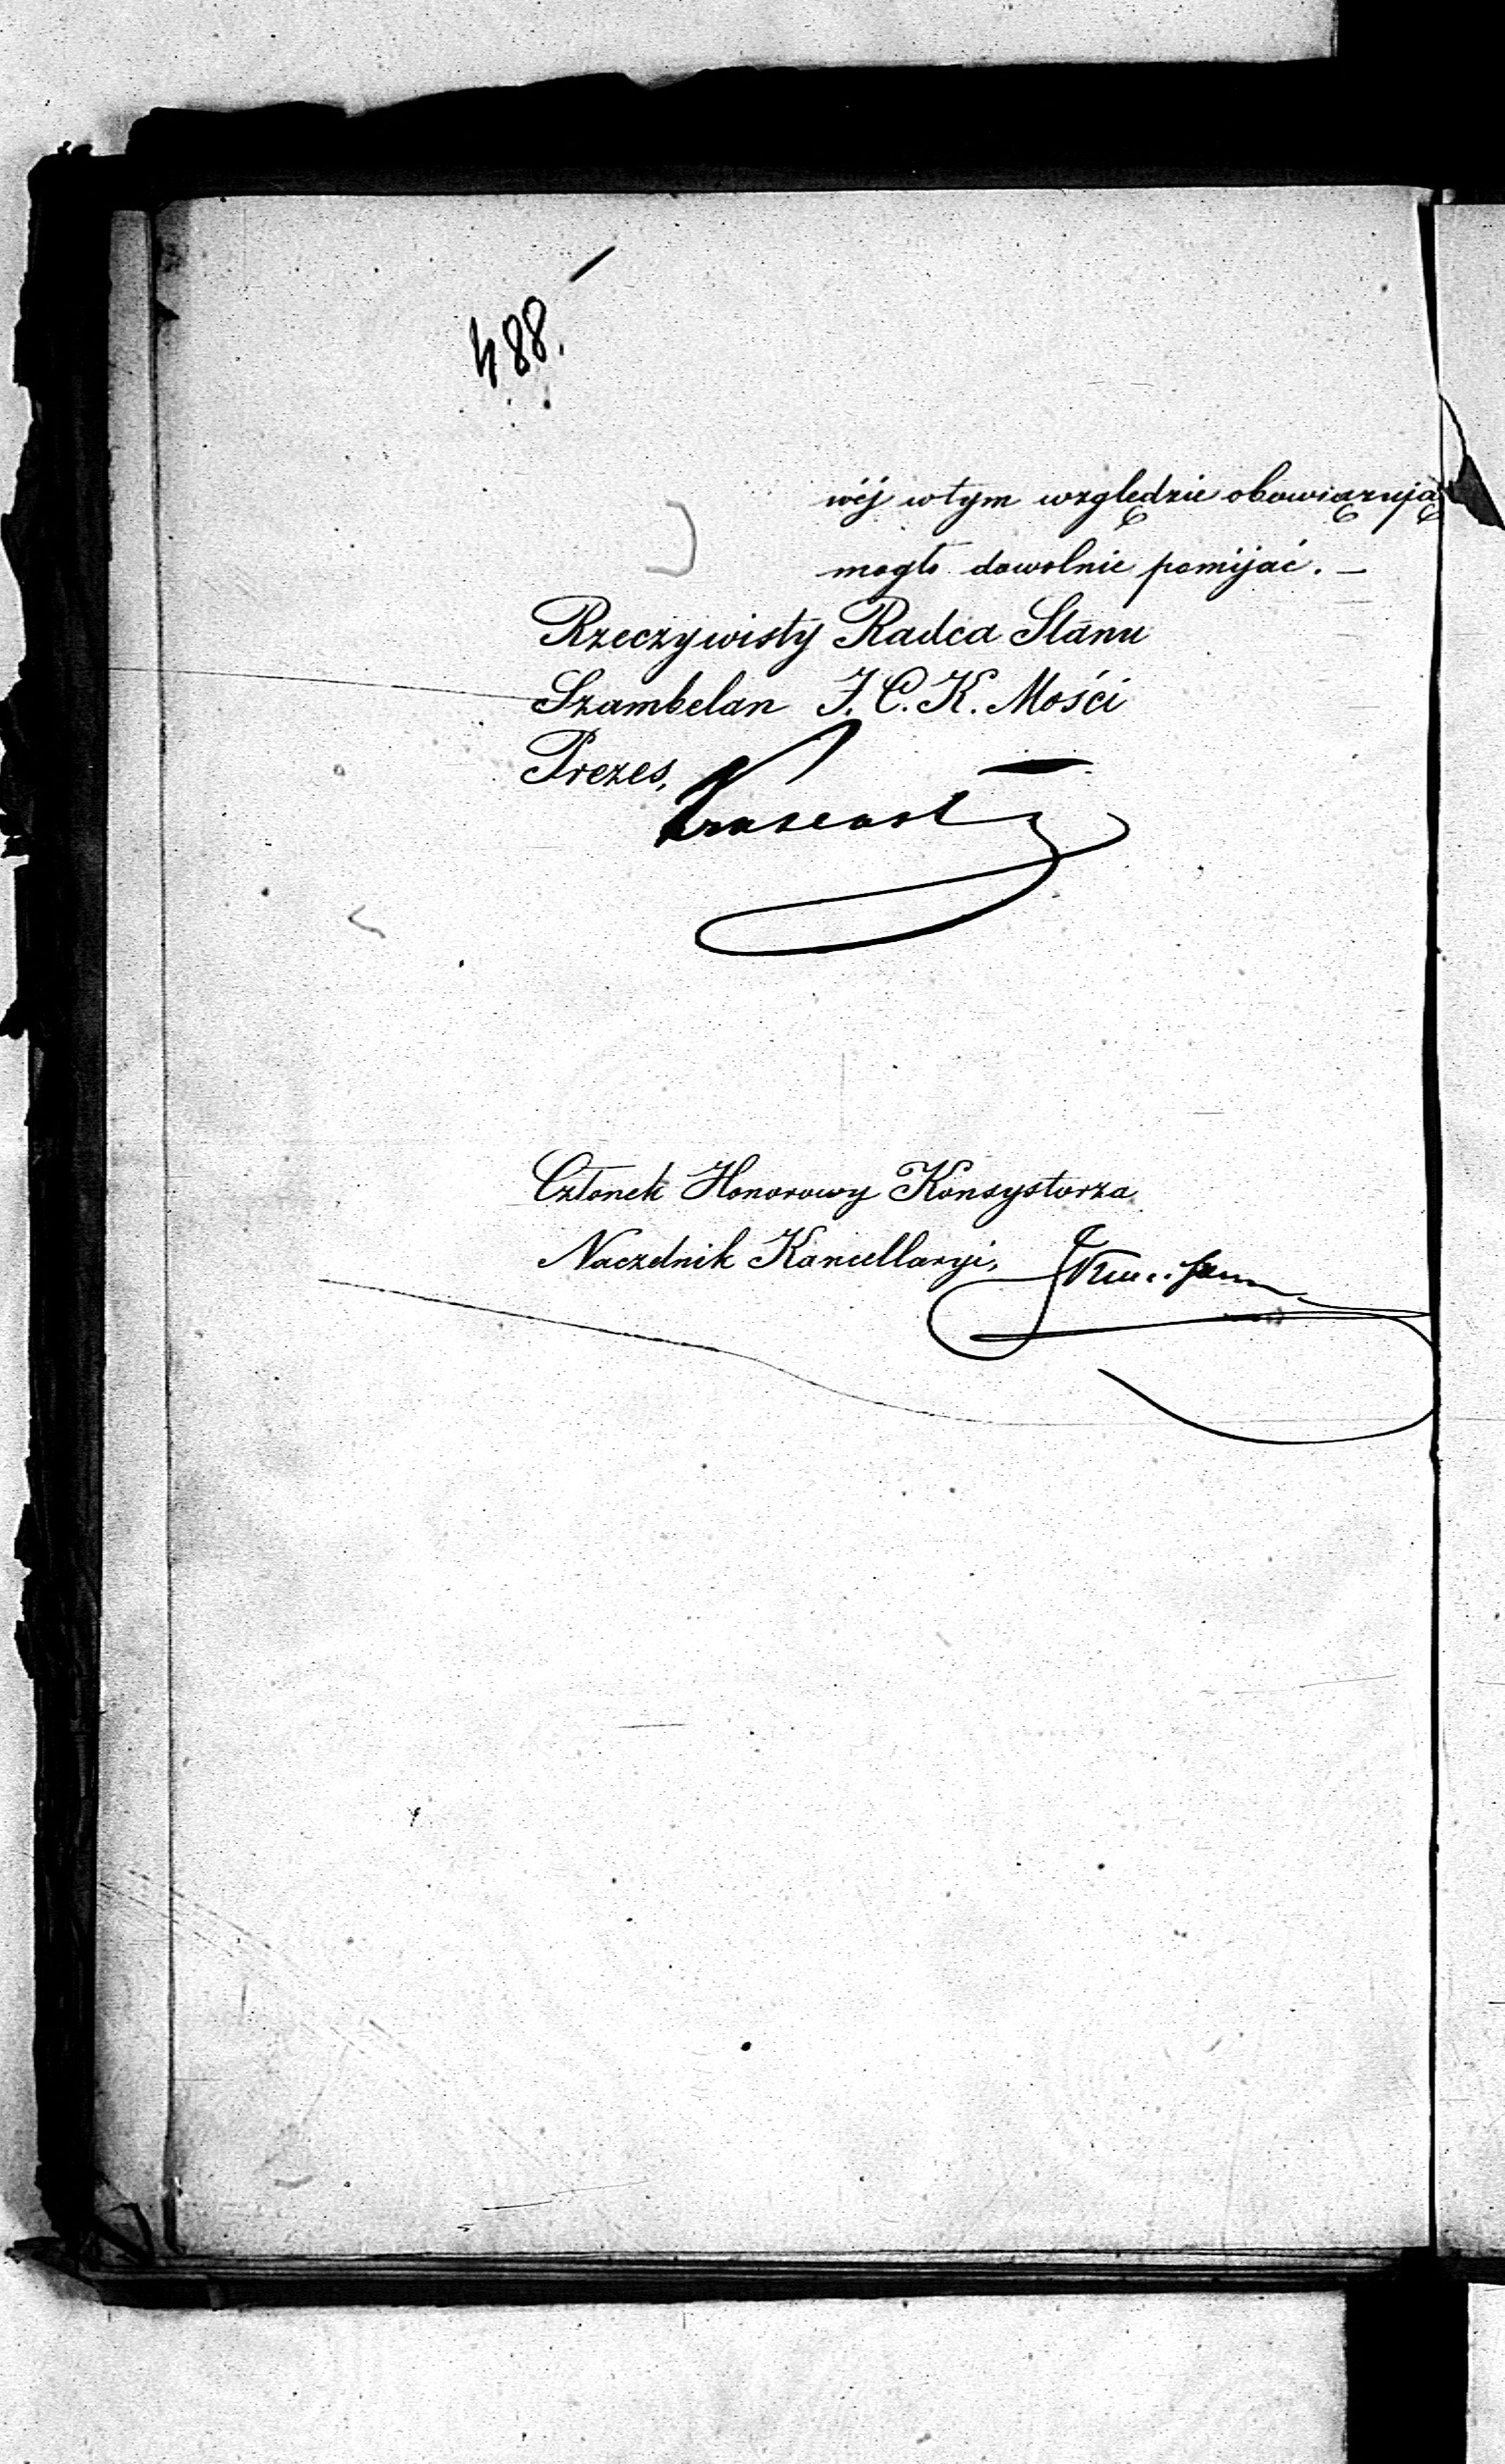 488.
wéj w tym względzie obowiązują
mogło dowolnie pomijać. —
Rzeczywisty Radca Stanu
Szambelan J. C. K. Mości
Prezes,
Członek Honorowy Konsystorza
Naczelnik Kancellaryi,